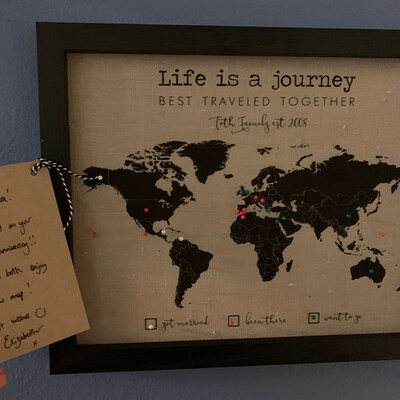 Life is a journey
BEST TRAVELED TOGETHER
Toth Family est 2008
got married
been there
want to go
on your
anniversary!!
both enjoy
map!
wishes ☺
Elizabeth
x